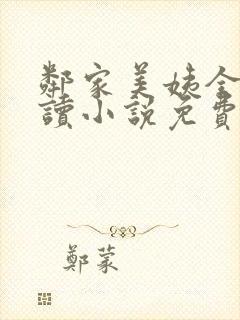 鄰家美姨全
讀小說免費
鄭蒙